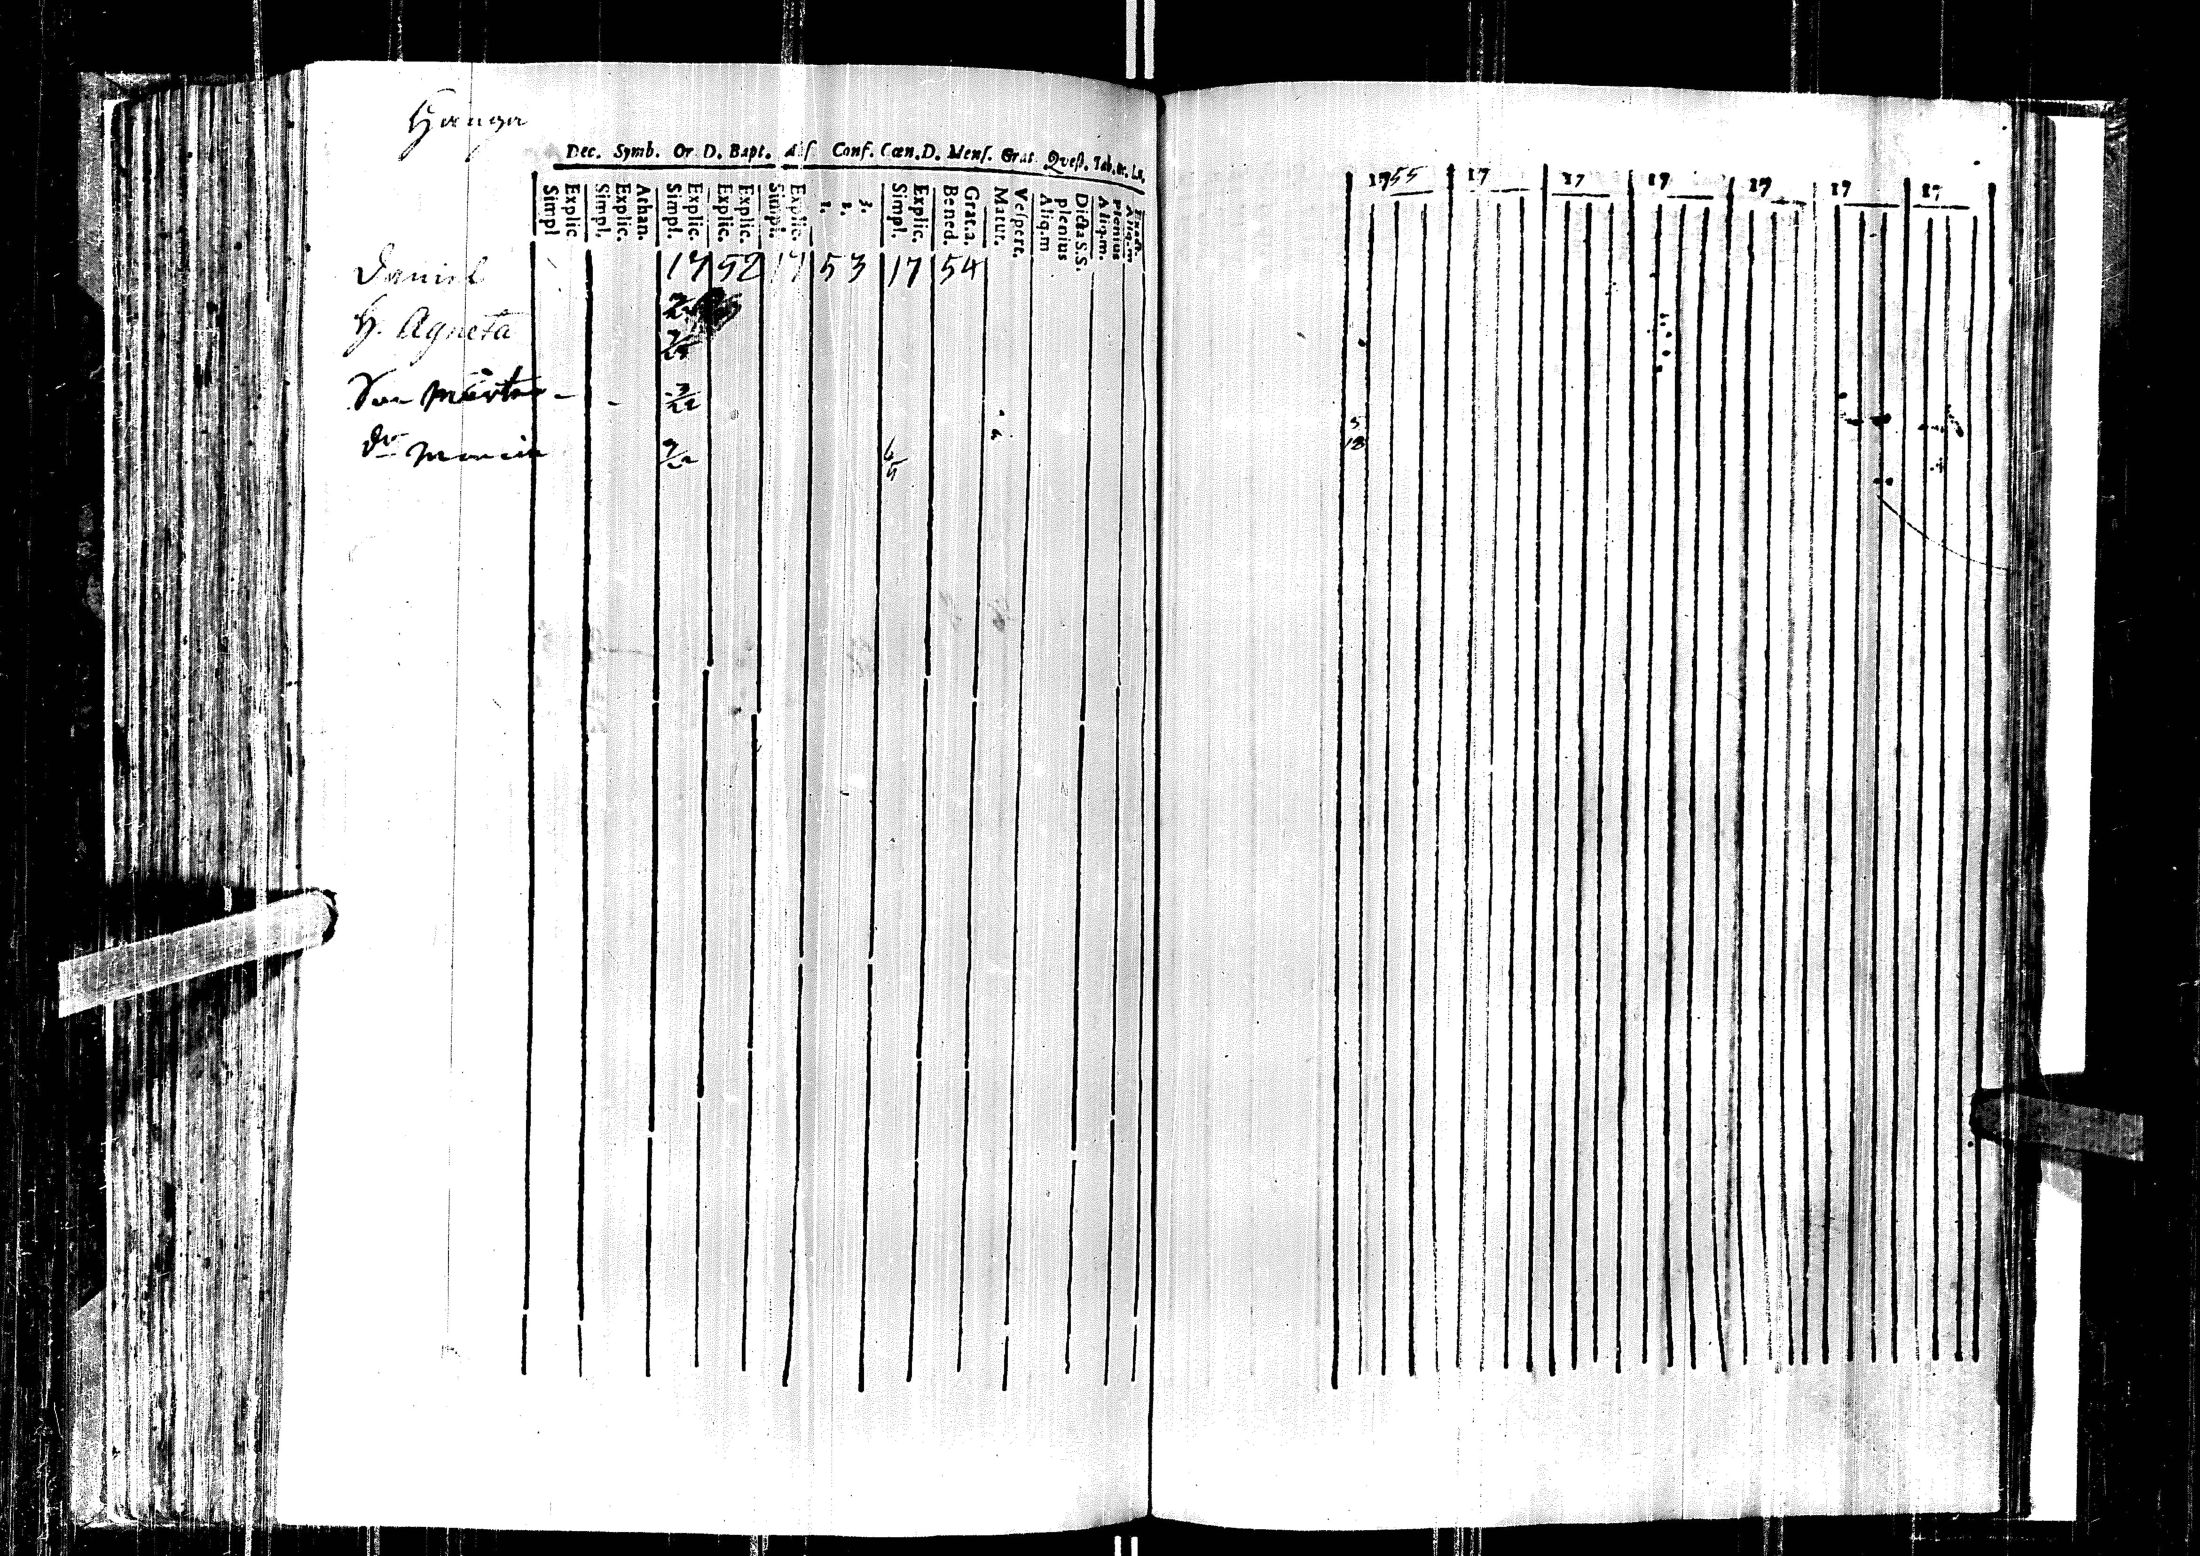 Hauga
Dec. Symb. Or D. Bapt. Abſ Conf. Cœn.D. Menſ. Grat. Qveſt. Tab.œ. Lu.
Simpl Explic Simpl. Explic. Athan. Simpl. Explic. Explic. Explic. Simpl. Explic. 1. 2. 3. Simpl. Explic. Bened. Grat.a. Matut. Veſpert. Aliq.m plenius Dicta S.S. Aliq.m. plenius Aliq.m
1755 17 17 17 17 17 17
Daniel 17 52 17 53 17 54
H. Agneta
Son Mårten
dr Maria